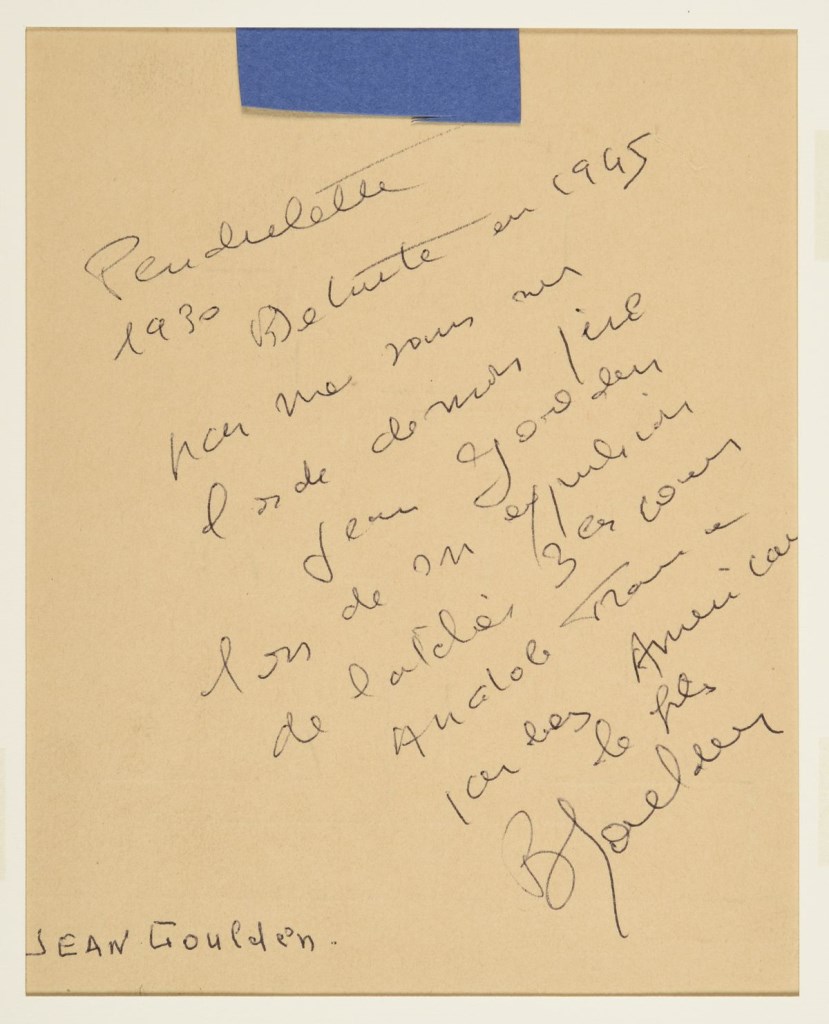 Pendulette
1930 Detruite en 1945
par ma sous
l de mon père
Jean Goulden
lors de son expulsion
de l'atelier 3 cours
Anatole France
par les Américain
le fils
B Goulden
JEAN Goulden.